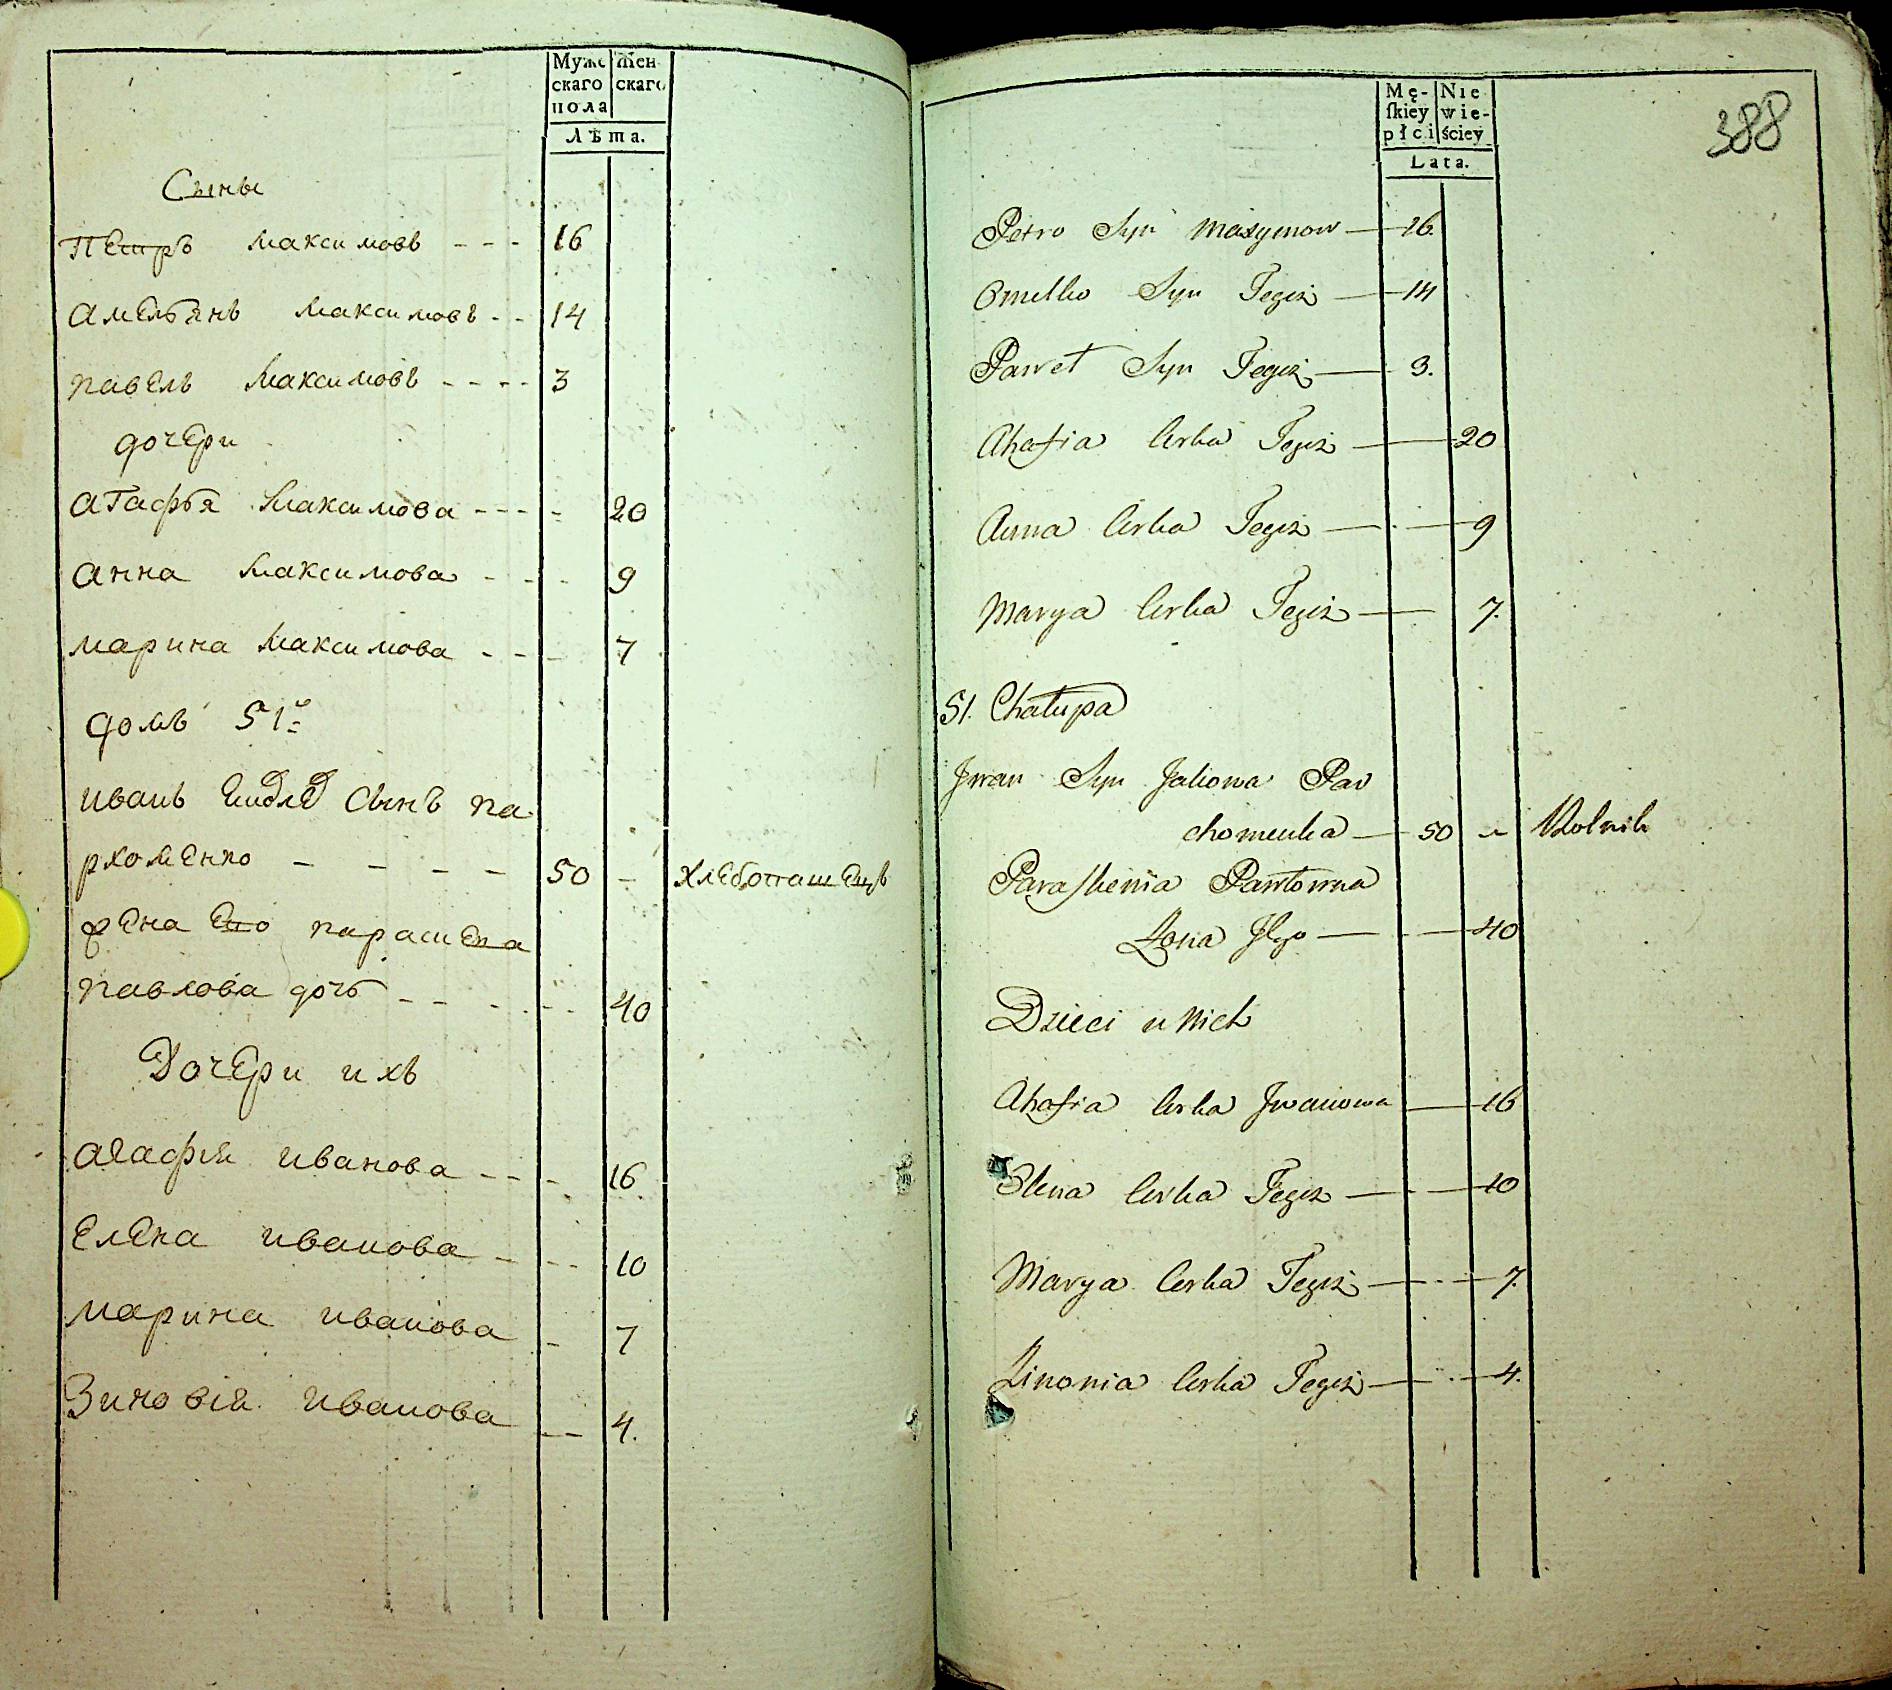 Муже Жен
скаго скаго
пола
Лѣта.
Сыны
Петръ Максимовъ - - - 16
Амельянъ Максимовъ - - 14
павелъ Максимовъ - - - - 3
дочери
Агафья Максимова - - - - 20
анна Максимова - - - 9
марина Максимова - - - 7
домъ 51й
иванъ сынъ па
рхоменко - - - - 50 - хлебопашецъ
жена его параскева
павлова дочь - - - - - 40
Дочери ихъ
агафия иванова - - - 16
елена иванова - - - 10
марина иванова - 7
Зиновія иванова - - 4.
388
Mę- Nie
ſkiey wie-
płci ściey
Lata.
Petro Syn Maxymow — 16.
Omelko Syn Tegoż — 14
Paweł Syn Tegoż — 3.
Ahafia Corka Tegoż — 20
Anna Corka Tegoż — 9
Marya Corka Tegoż — 7.
51. Chałupa
Jwan Syn Par
chomenka — 50 - Rolnik
Paraſkewia Pawłowna
Żona Jego — 40
Dzieci u Nich
Ahafia Corka Jwanowa — 16
Elena Corka Tegoż — 10
Marya Corka Tegoż — 7.
Zinowia Corka Tegoż — 4.